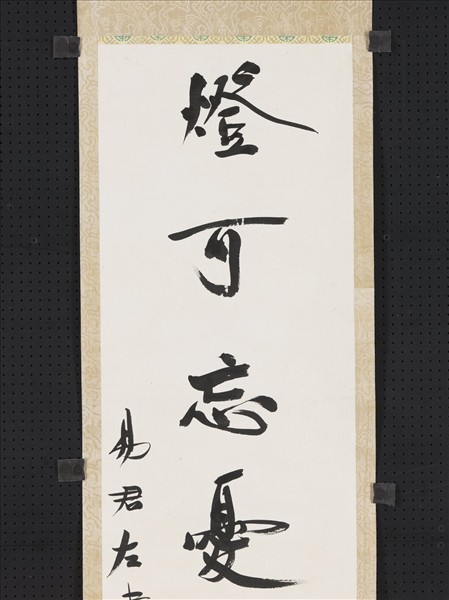 燈可忘憂
易君左